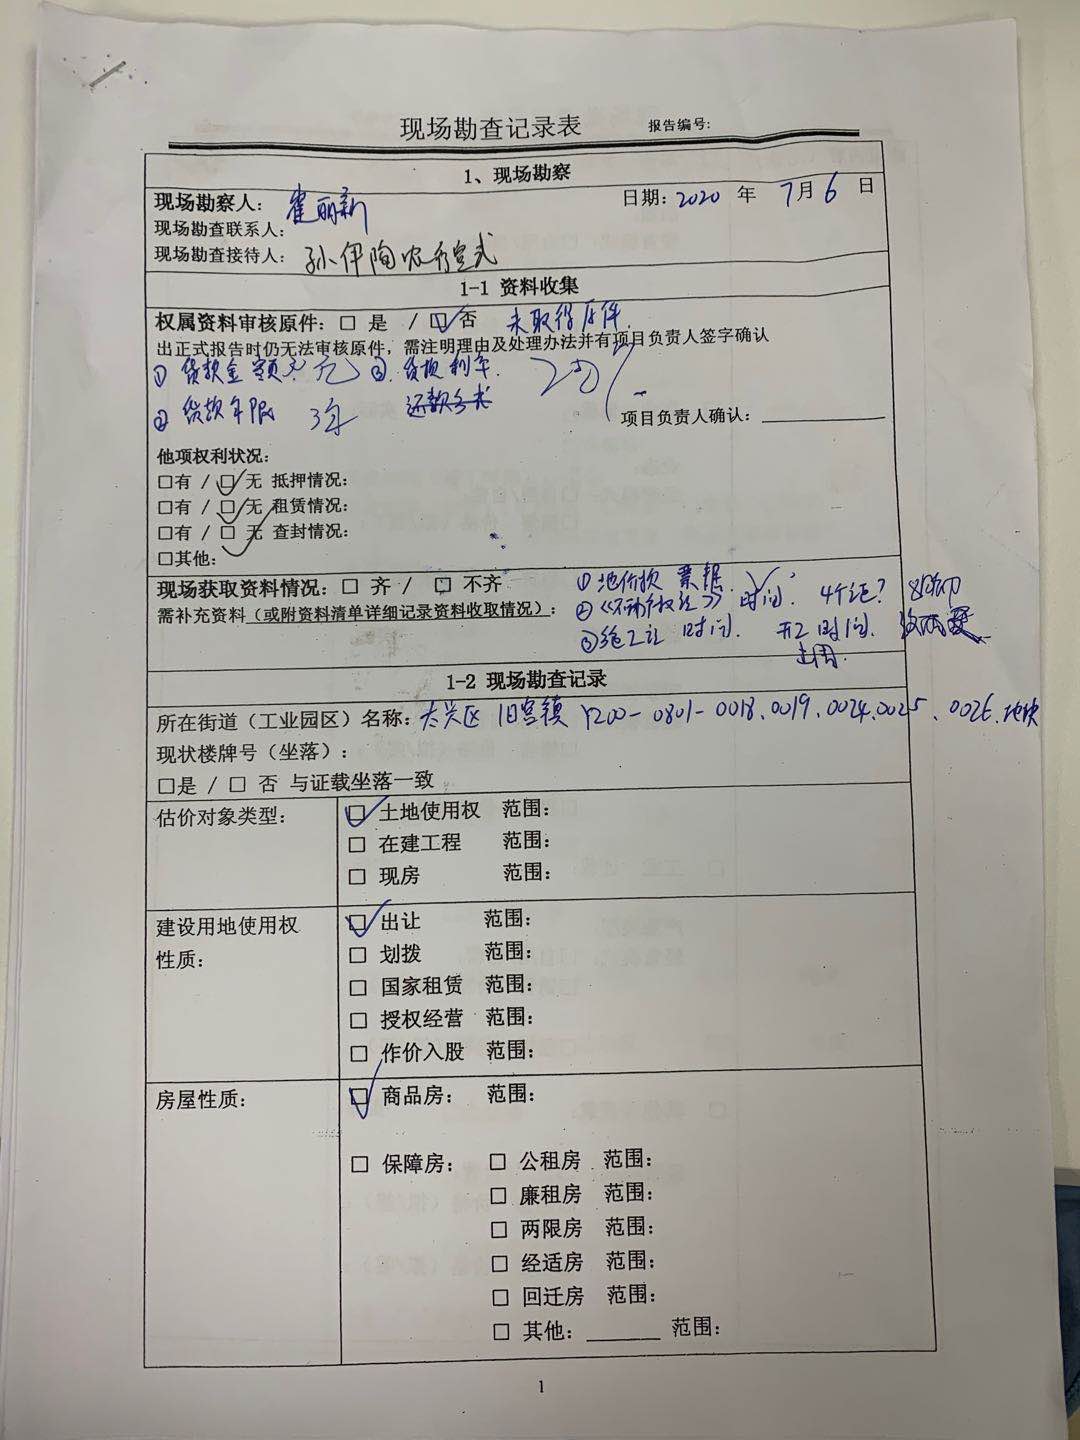 现场勘查记录表 报告编号:
1、现场勘察
现场勘察人: 崔丽新 日期: 2020 年 7月 6 日
现场勘查联系人:
现场勘查接待人: 孙伊陶
1-1 资料收集
权属资料审核原件: □ 是 / □ 否 未取得原件.
出正式报告时仍无法审核原件，需注明理由及处理办法并有项目负责人签字确认
① 贷款金额 ③ 贷款利率.
② 贷款年限 3年 还款方式
项目负责人确认: ________
他项权利状况:
□有 / □ 无 抵押情况:
□有 / □ 无 租赁情况:
□有 / □ 无 查封情况:
□其他:
现场获取资料情况: □ 齐 / □ 不齐 ① 地价款 票据.
需补充资料（或附资料清单详细记录资料收取情况）: ② 《不动产权证》 时间.
时间. 开工时间.
1-2 现场勘查记录
所在街道（工业园区）名称: 大兴区 旧宫镇 Y200-0801-0018、0019、0024、0025、0026、地块
现状楼牌号（坐落）:
□是 / □ 否 与证载坐落一致
估价对象类型: □ 土地使用权 范围:
□ 在建工程 范围:
□ 现房 范围:
建设用地使用权 □ 出让 范围:
性质: □ 划拨 范围:
□ 国家租赁 范围:
□ 授权经营 范围:
□ 作价入股 范围:
房屋性质: □ 商品房: 范围:
□ 保障房: □ 公租房 范围:
□ 廉租房 范围:
□ 两限房 范围:
□ 经适房 范围:
□ 回迁房 范围:
□ 其他: ______ 范围:
1